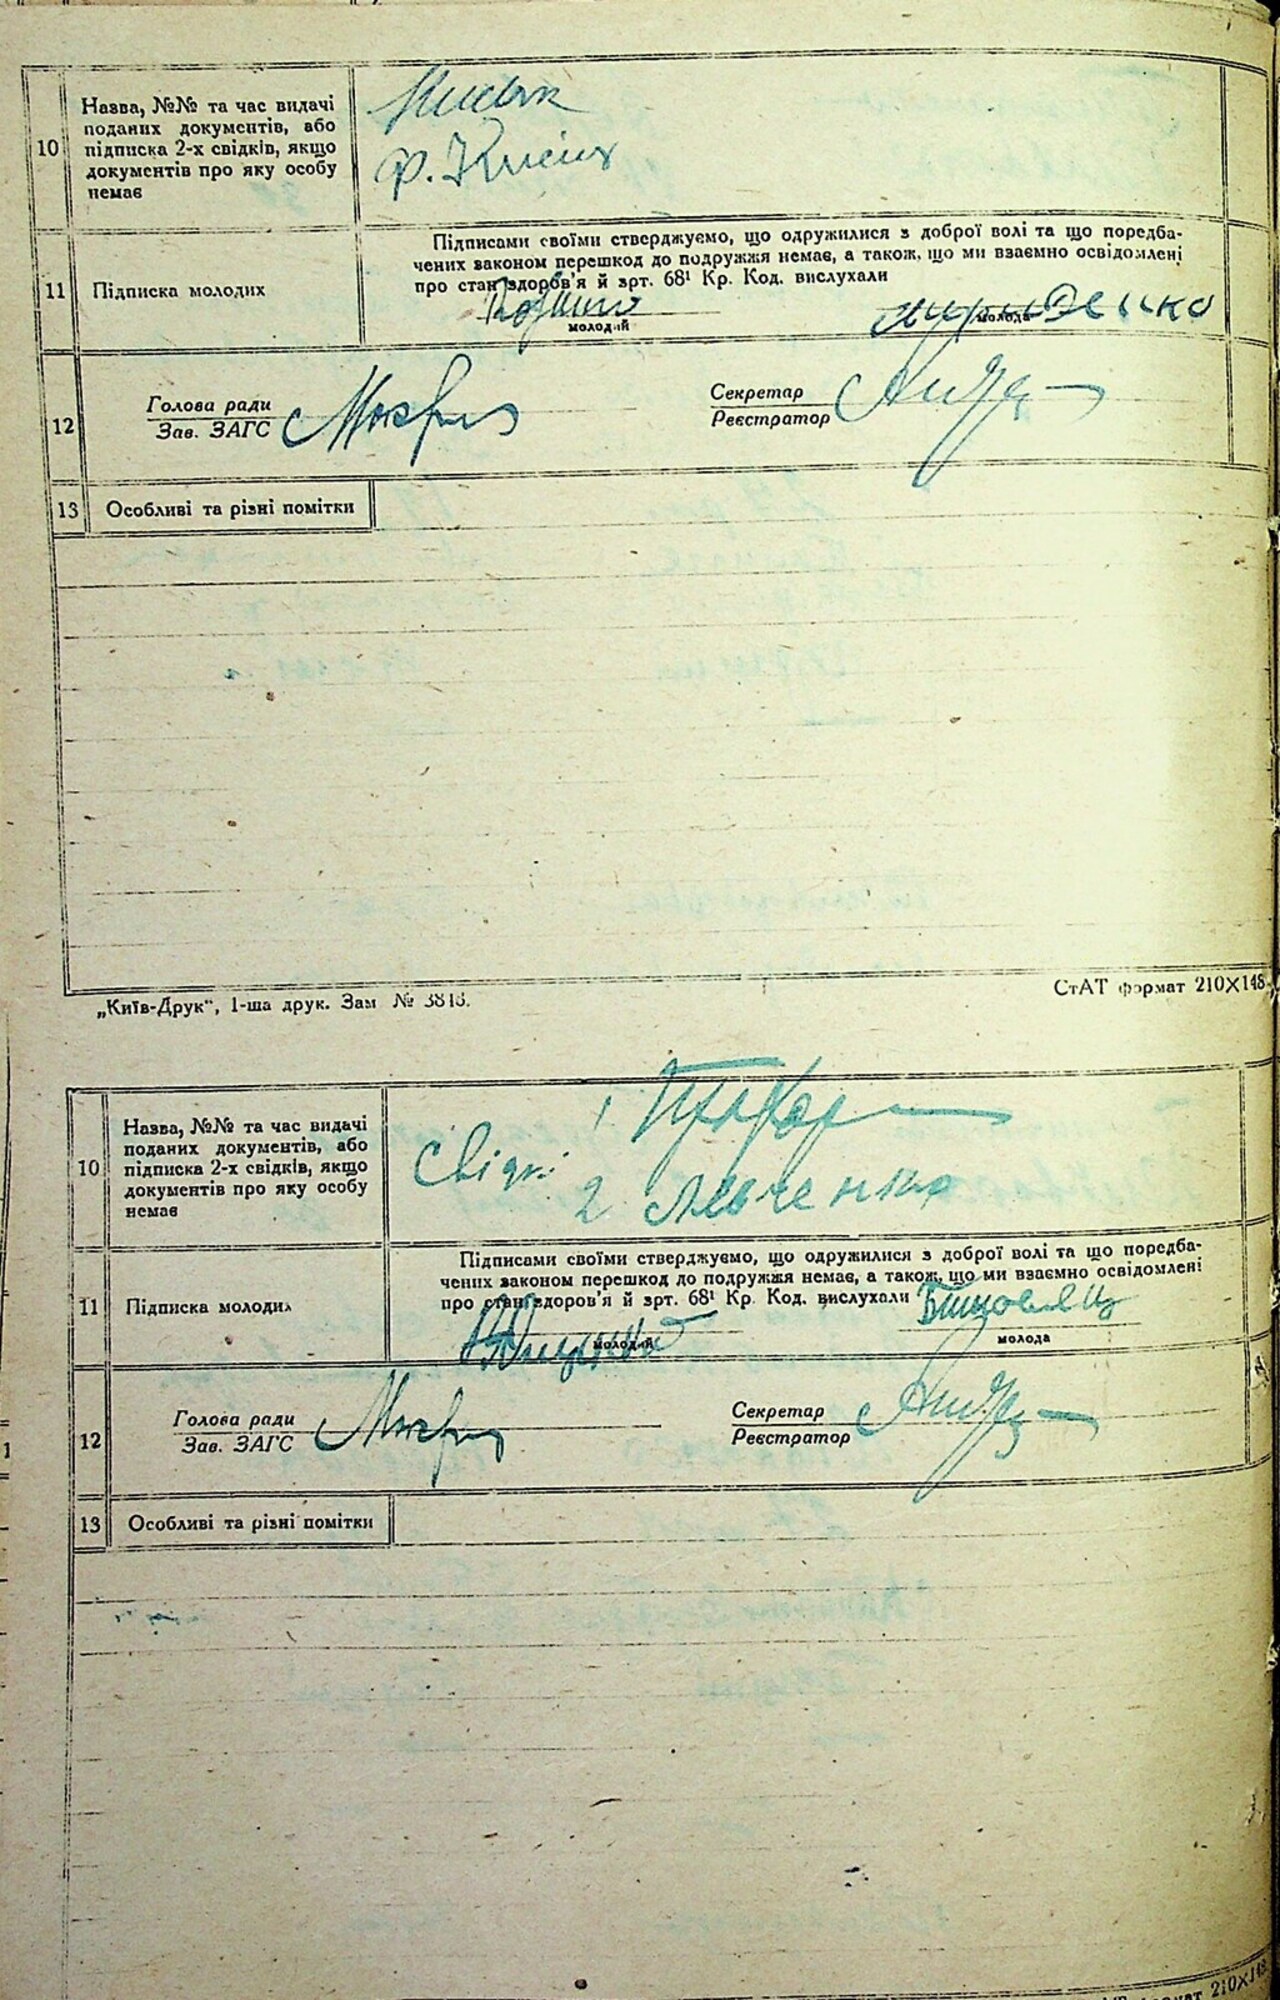 10
Назва, №№ та час видачі
поданих документів, або
підписка 2-х свідків, якщо
документів про яку особу
немає
11
Підписка молодих
Підписами своїми стверджуємо, що одружилися з доброї волі та що поредба-
чених законом перешкод до подружжя немає, а також, що ми взаємно освідомлені
про стан здоров'я й зрт. 68¹ Кр. Код. вислухали
молодий
молода
12
Голова ради
Зав. ЗАГС
Секретар
Реєстратор
13
Особливі та різні помітки
„Київ-Друк“, 1-ша друк. Зам №
СтАТ формат 210X148
10
Назва, №№ та час видачі
поданих документів, або
підписка 2-х свідків, якщо
документів про яку особу
немає
1
Свідкі
2 Левченко
11
Підписка молодих
Підписами своїми стверджуємо, що одружилися з доброї волі та що поредба-
чених законом перешкод до подружжя немає, а також, що ми взаємно освідомлені
про стан здоров'я й зрт. 68¹ Кр. Код. вислухали
молодий
молода
12
Голова ради
Зав. ЗАГС
Секретар
Реєстратор
13
Особливі та різні помітки
210X148